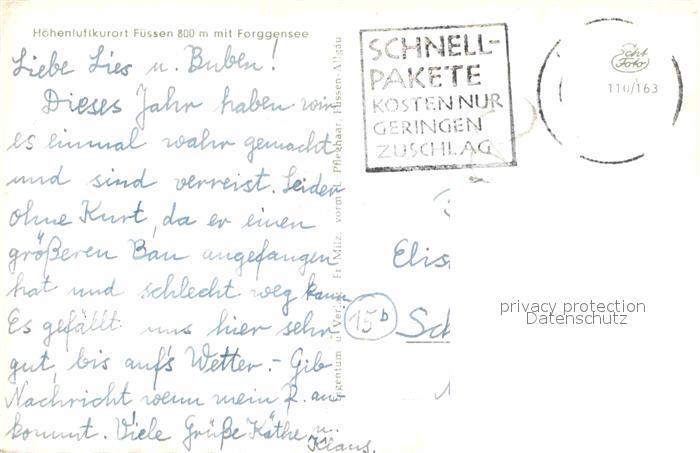 Höhenluftkurort Füssen 800 m mit Forggensee
Liebe Lies u. Buben!
Dieses Jahr haben wir
es einmal wahr gemacht
und sind verreist. Leider
ohne Kurt, da er einen
größeren Bau angefangen
hat und schlecht weg kann
Es gefällt uns hier sehr
gut, bis auf's Wetter. - Gib
Nachricht wenn mein P. an-
kommt. Viele Grüße Käthe u.
Klaus.
Eigentum u. Verlag Fr. Milz, vorm. Pfleghaar, Füssen-Allgäu
SCHNELL-
PAKETE
KOSTEN NUR
GERINGEN
ZUSCHLAG
Echt
Foto
110/163
Elis
15b
Sch
privacy protection
Datenschutz